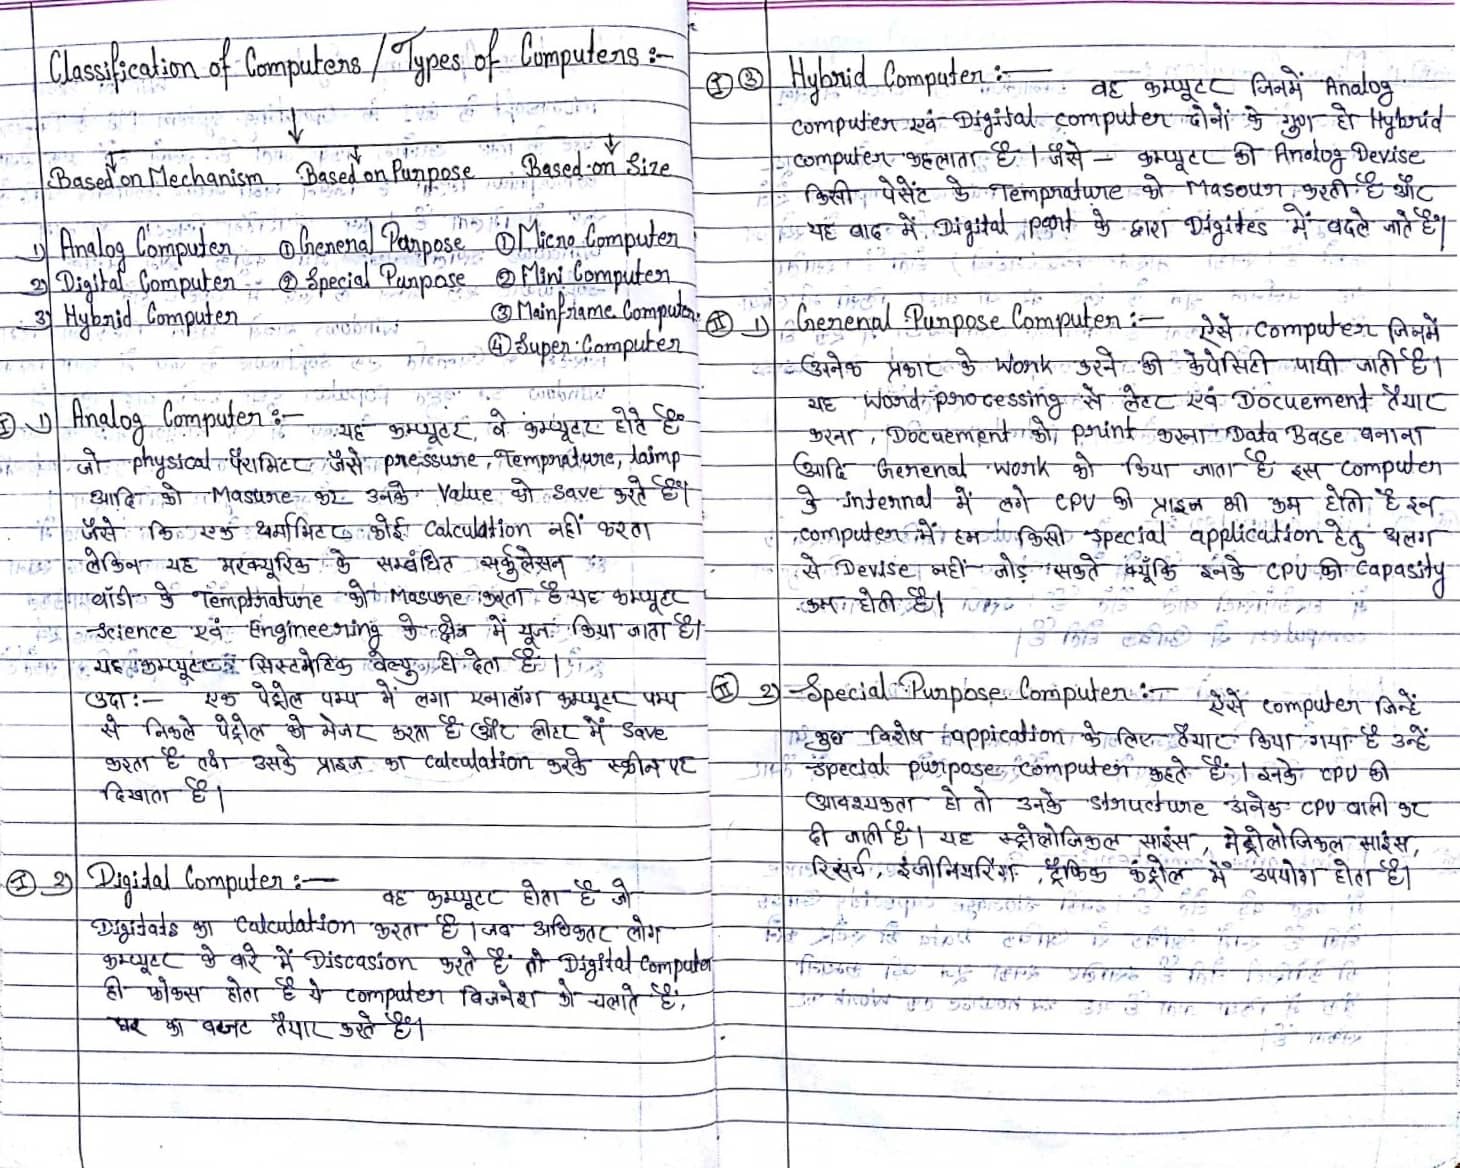 Classification of Computers / Types of Computers :-
Based on Mechanism Based on Purpose Based on Size
1) Analog Computer ① General Parpose ① Micro Computer
2) Digital Computer ② Special Purpose ② Mini Computer
3) Hybrid Computer ③ Mainframe Computer
④ Super Computer
Ⅰ 1) Analog Computer :-
यह कम्प्यूटर, वे कंम्प्यूटर होते है
जो physical पैरामिटर जैसे pressure, Temprature, laimp
आदि को Masure कर उनके Value को save करते है।
जैसे कि एक थर्मामिटर कोई Calculation नहीं करता
लेकिन यह मरक्यूरिक के सम्बंधित सर्कुलेसन
बॉडी के Temprature को Masure करता है यह कम्प्यूटर
Science एवं Engineering के क्षेत्र में यूज किया जाता है।
यह कम्प्यूटर सिस्टमेटिक वेल्यु ही देता है।
उदा :- एक पेट्रोल पम्प में लगा एनालॉग कम्प्यूटर पम्प
से निकले पेट्रोल को मेजर करता है और लीटर में save
करता है तथा उसके प्राइज का Calculation करके स्क्रीन पर
दिखाता है।
Ⅰ 2) Digital Computer :-
वह कम्प्यूटर होता है जो
Digitats का Calculation करता है। जब अधिकतर लोग
कम्प्यूटर के बारे में Discasion करते है तो Digital Computer
ही फोकस होता है ये computer बिजनेश को चलाते है,
घर का बजट तैयार करते है।
Ⅰ ③ Hybrid Computer :-
वह कम्प्यूटर जिनमें Analog
computer एवं Digital computer दोनों के गुण हो Hybrid
computer कहलाता है। जैसे - कम्प्यूटर की Analog Devise
किसी पेसेंट के Temprature को Masour करती है और
यह बाद में Digital part के द्वारा Digites में बदले जाते है।
Ⅱ 1) General Purpose Computer :- ऐसे computer जिनमें
अनेक प्रकार के work करने की केपेसिटी पायी जाती है।
यह Word processing से लेटर एवं Docuement तैयार
करना, Docuement को print करना Data Base बनाना
आदि General work को किया जाता है इस computer
के internal में लगे CPU की प्राइज भी कम होती है इन
computer में हम किसी special application हेतु अलग
से Devise नहीं जोड़ सकते क्यूंकि इनके CPU की Capasity
कम होती है।
Ⅱ 2) Special Purpose Computer :- ऐसे computer जिन्हें
कुछ विशेष appication के लिए तैयार किया गया है उन्हें
special purpose computer कहते है। इनके CPU की
आवश्यकता हो तो उनके structure अनेक CPU वाली कर
दी जाती है। यह स्ट्रोलोजिकल साइंस, मेट्रोलोजिकल साइंस,
रिसर्च, इंजीनियरिंग, ट्रैफिक कंट्रोल में उपयोग होता है।